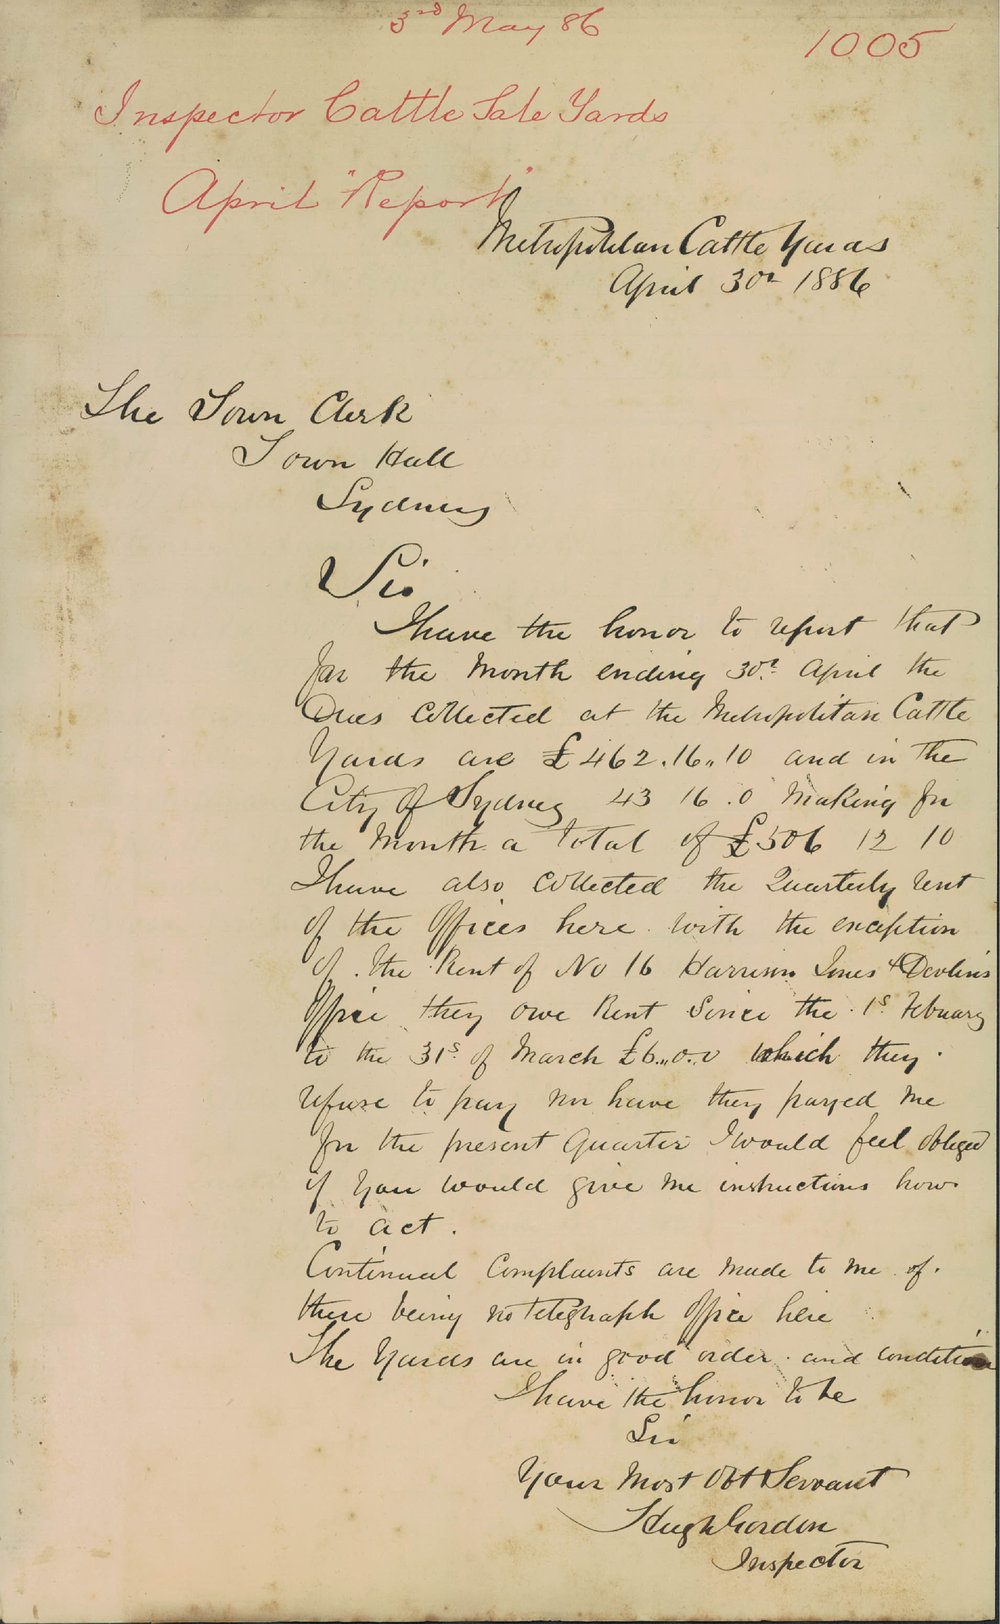 3rd May 86
1005
Inspector Cattle Sale Yards
April "Report"
Metropolitan Cattle Yards
April 30th 1886
The Town Clerk
Town Hall
Sydney
Sir
I have the honor to report that
for the Month ending 30th April the
Dues Collected at the Metropolitan Cattle
Yards are £462.16.10 and in the
City of Sydney 43 16.0 Making for
the Month a total of £506 12 10
I have also Collected the Quarterly rent
of the Offices here with the exception
of the Rent of No 16 Harrison Jones & Devlin's
Office they owe Rent Since the 1st Febuary
to the 31st of March £6..0.0 which they
refuse to pay nor have they payed me
for the present Quarter I would feel obliged
if you would give me instructions how
to act.
Continual Complaints are made to me of
there being no telegraph office here
The Yards are in good order and condition
I have the honor to be
Sir
Your Most Obt Servant
Hugh Gordon
Inspector